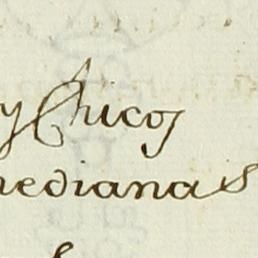 y Chicos
medianas